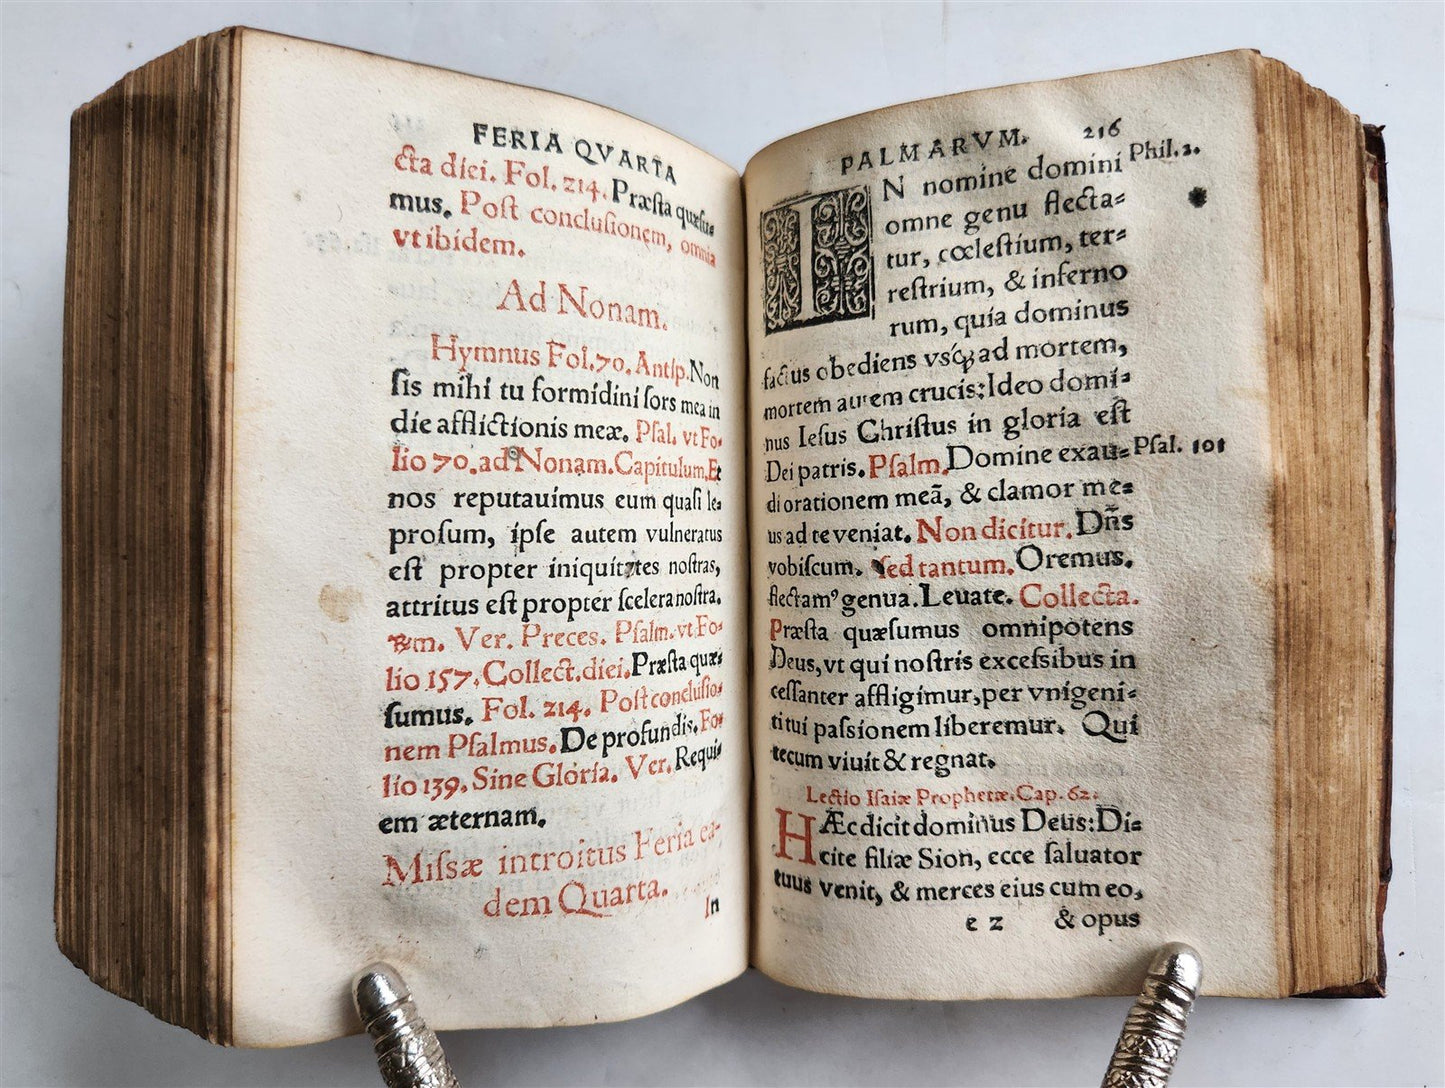 FERIA QVARTA
cta diei. Fol. 214. Præsta quæsu-
mus. Post conclusionem, omnia
vt ibidem.
Ad Nonam.
Hymnus Fol. 70. Antip. Non
sis mihi tu formidini sors mea in
die afflictionis meæ. Psal. vt Fo-
lio 70. ad Nonam. Capitulum, Et
nos reputauimus eum quasi le-
prosum, ipse autem vulneratus
est propter iniquitates nostras,
attritus est propter scelera nostra.
℞m. Ver. Preces. Psalm. vt Fo-
lio 157. Collect. diei. Præsta quæ-
sumus. Fol. 214. Post conclusio-
nem Psalmus. De profundis. Fo-
lio 139. Sine Gloria. Ver. Requi-
em æternam.
Missæ introitus Feria ea-
dem Quarta.
In
PALMARVM. 216
IN nomine domini Phil. 2.
omne genu flecta-
tur, cœlestium, ter-
restrium, & inferno
rum, quia dominus
factus obediens vsq; ad mortem,
mortem autem crucis: Ideo domi-
nus Iesus Christus in gloria est
Dei patris. Psalm. Domine exau- Psal. 101
di orationem meā, & clamor me-
us ad te veniat. Non dicitur. Dñs
vobiscum. sed tantum. Oremus.
flectamꝰ genua. Leuate. Collecta.
Præsta quæsumus omnipotens
Deus, vt qui nostris excessibus in
cessanter affligimur, per vnigeni-
ti tui passionem liberemur. Qui
tecum viuit & regnat.
Lectio Isaiæ Prophetæ. Cap. 62.
HÆc dicit dominus Deus: Di-
cite filiæ Sion, ecce saluator
tuus venit, & merces eius cum eo,
e 2 & opus